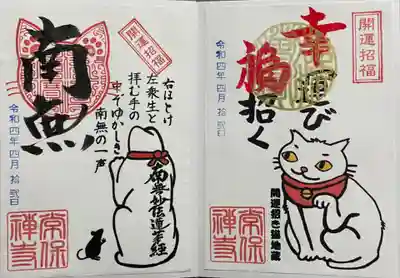 開運招福
幸運び
福招く
令和四年四月拾弐日
開運招き猫地蔵
常保
禅寺
開運招福
右ほとけ
左衆生と
拝む手の
中ぞゆかしき
南無の一声
南無
令和四年四月拾弐日
常保
禅寺